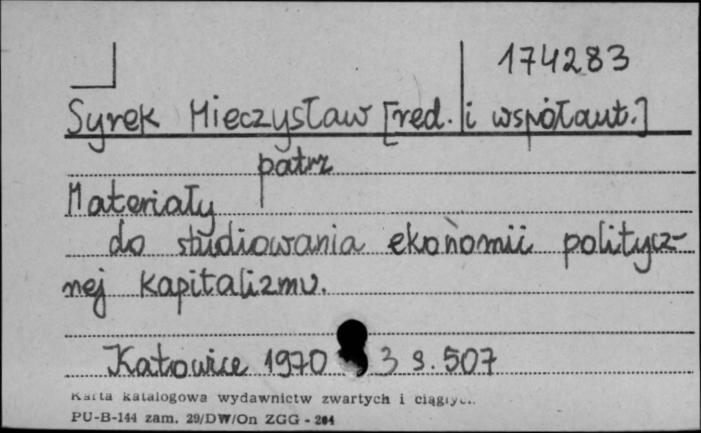 174283
Syrek Mieczysław [red. i współaut.]
patrz
Materiały
do studiowania ekonomii politycz-
nej kapitalizmu.
Katowice 1970 3 s. 507
Karta katalogowa wydawnictw zwartych i ciągłych.
PU-B-144 zam. 29/DW/On ZGG - 204